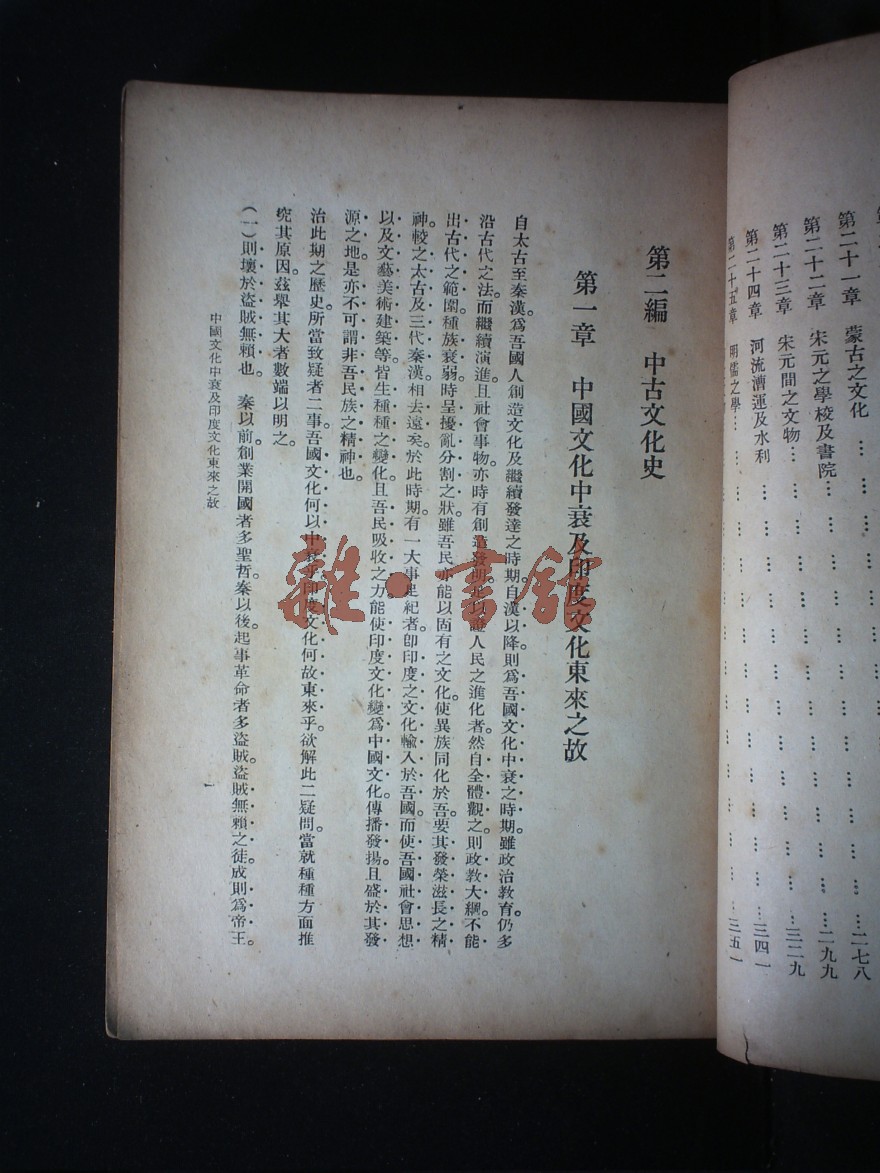 第二十一章　蒙古之文化… … … … … … … …二七八
第二十二章　宋元之學校及書院… … … … … … … …二九九
第二十三章　宋元間之文物… … … … … … … …三二九
第二十四章　河流漕運及水利… … … … … … … …三四一
第二十五章　明儒之學… … … … … … … …三五一
第二編　中古文化史
第一章　中國文化中衰及印度文化東來之故
自太古至秦漢。爲吾國人創造文化及繼續發達之時期。自漢以降。則爲吾國文化中衰之時期。雖政治敎育仍多
沿古代之法。而繼續演進。且社會事物。亦時有創造發明。足以證人民之進化者。然自全體觀之。則政敎大綱。不能
出古代之範圍。種族衰弱。時呈擾亂分割之狀。雖吾民亦能以固有之文化。使異族同化於吾。要其發榮滋長之精
神。較之太古及三代秦漢相去遠矣。於此時期。有一大事足紀者。卽印度之文化輸入於吾國。而使吾國社會思想
以及文藝美術建築等皆生種種之變化。且吾民吸收之力。能使印度文化變爲中國文化。傳播發揚。且盛於其發
源之地。是亦不可謂非吾民族之精神也。
治此期之歷史。所當致疑者二事。吾國文化何以中衰乎。印度文化何故東來乎。欲解此二疑問。當就種種方面推
究其原因。茲舉其大者數端以明之。
(一)則壞於盜賊無賴也。　秦以前創業開國者多聖哲。秦以後。起事革命者多盜賊。盜賊無賴之徒。成則爲帝王。
中國文化中衰及印度文化東來之故
一
雜·書館